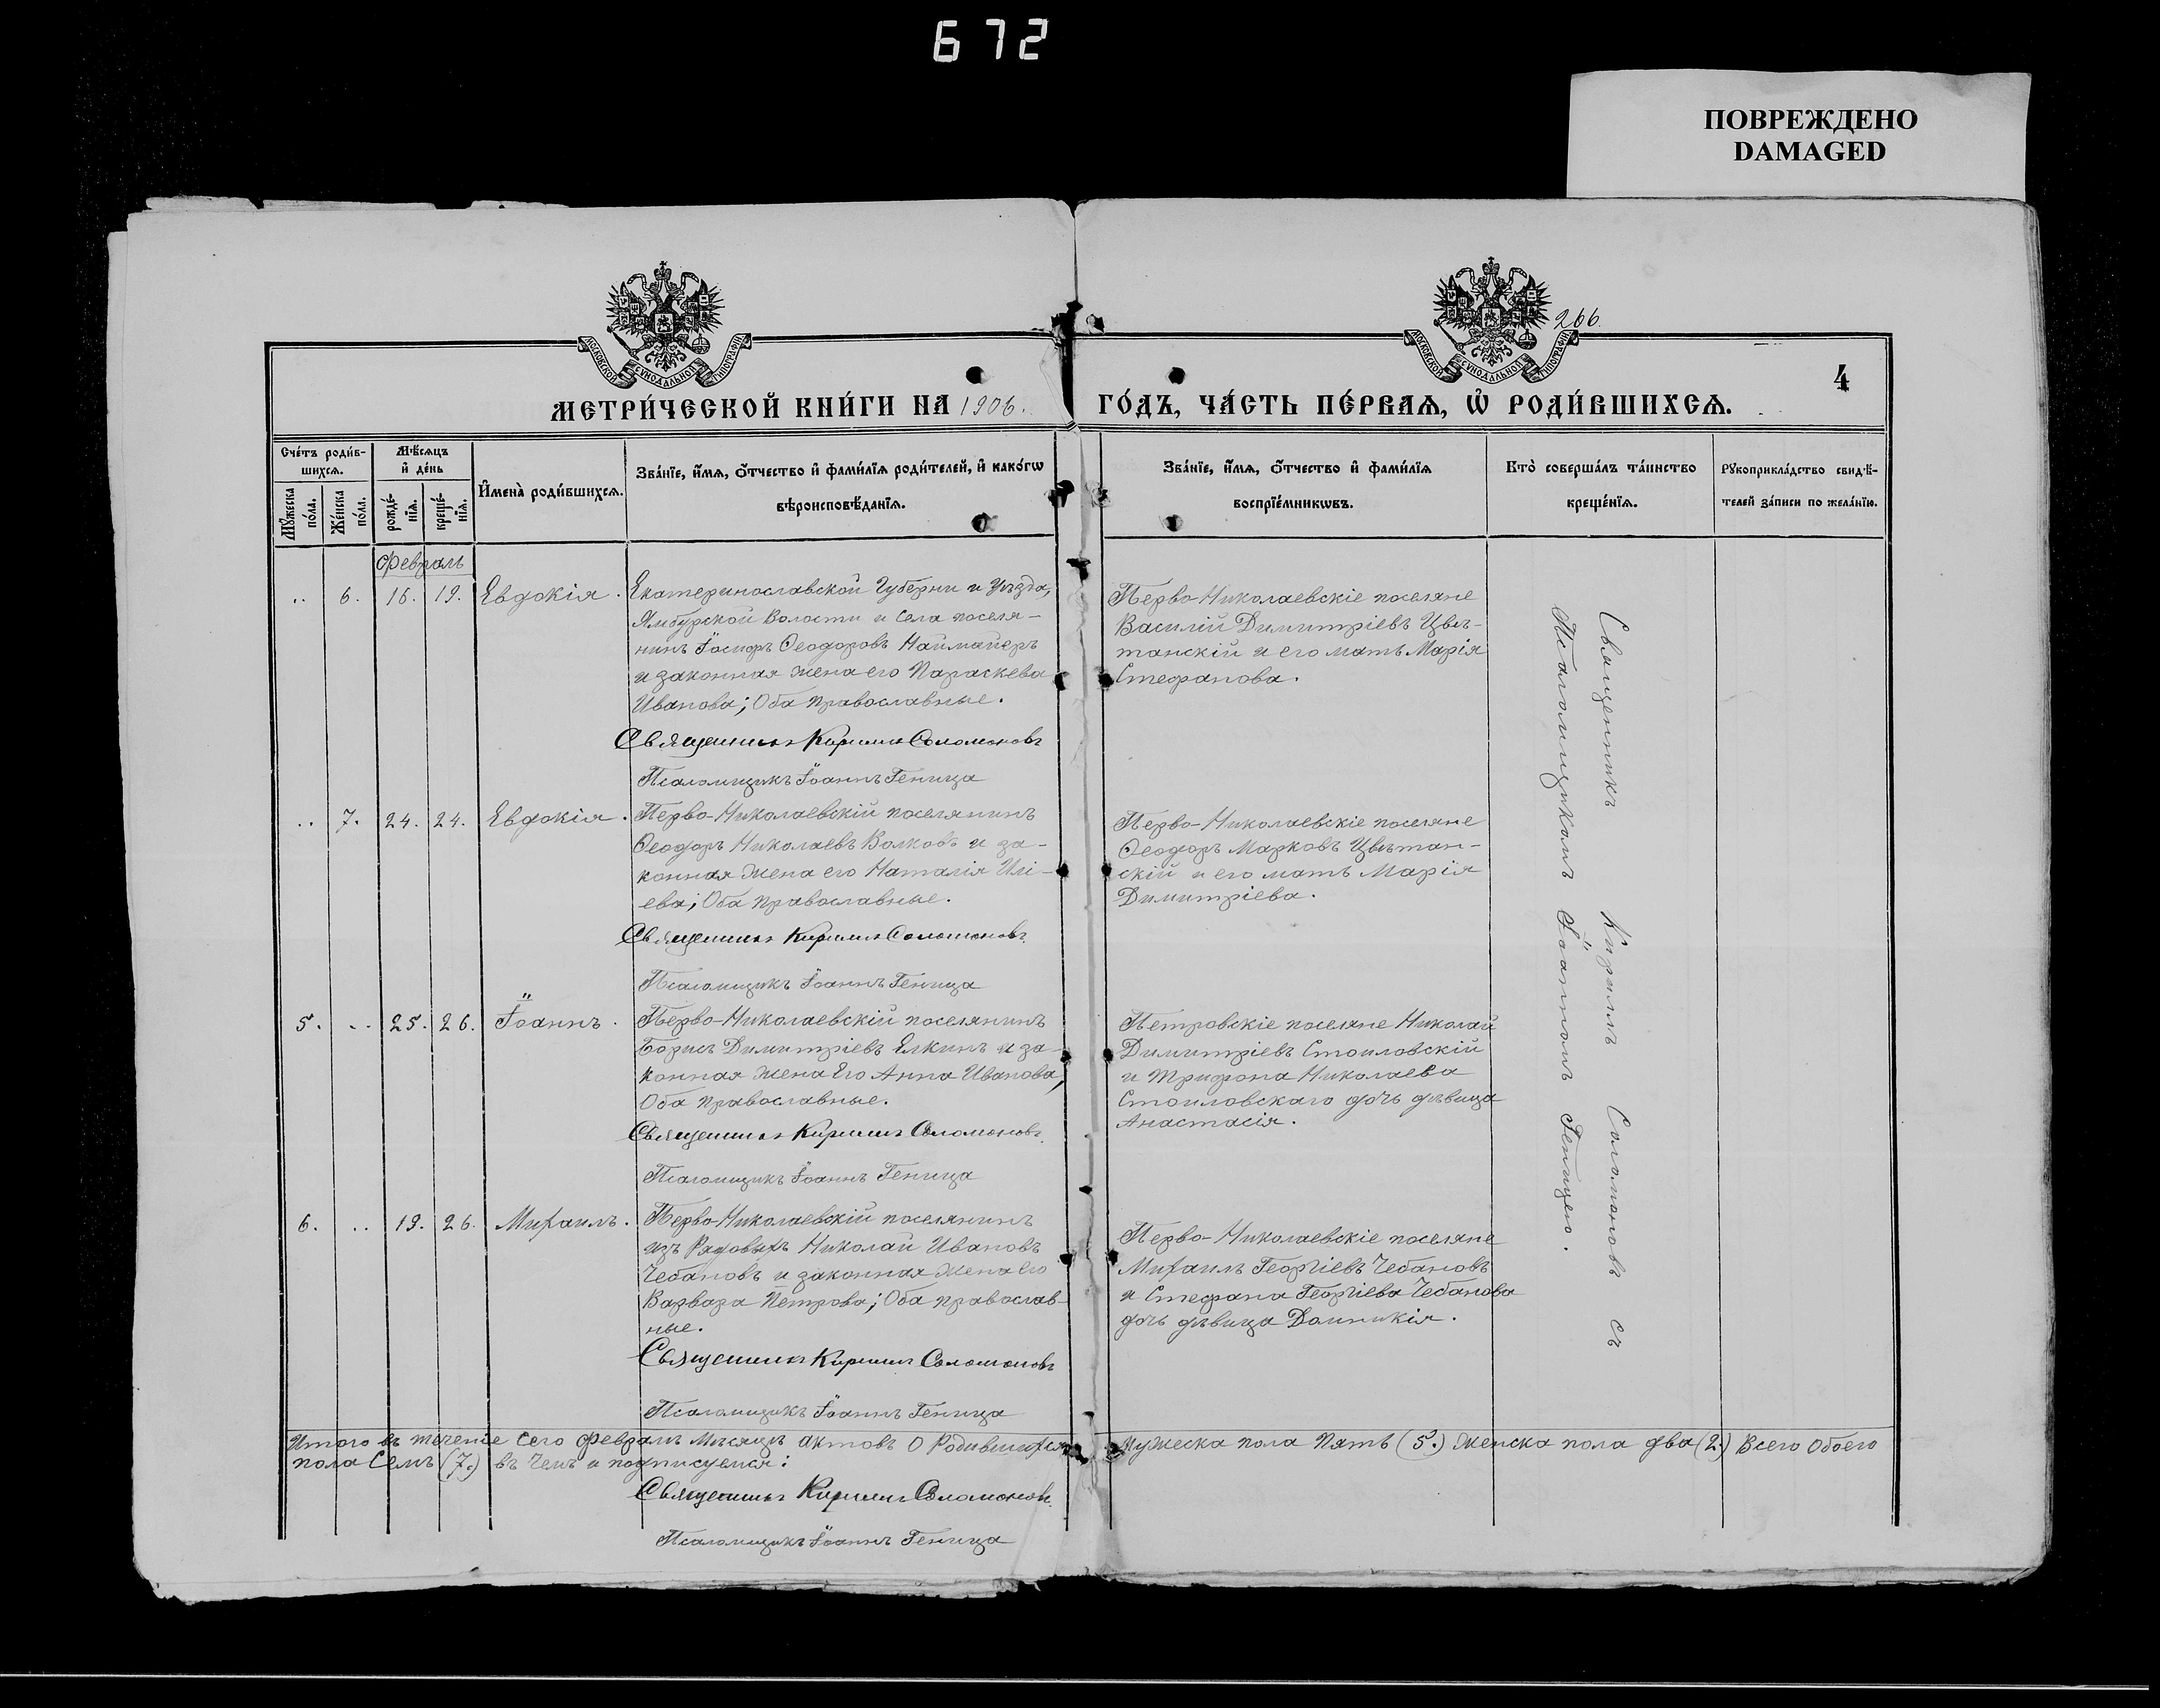 672
ПОВРЕЖДЕНО
DAMAGED
266.
4
МОСКОВСКОЙ СѴНОДАЛЬНОЙ ТИПОГРАФІИ
МОСКОВСКОЙ СѴНОДАЛЬНОЙ ТИПОГРАФІИ
МЕТРИ́ЧЕСКОЙ КНИ́ГИ НА 1906. ГО́ДЪ, ЧА́СТЬ ПЕ́РВАѦ, Ѡ҆ РОДИ́ВШИХСѦ.
Сче́тъ роди́в-
шихсѧ.
Мꙋ́жеска по́ла.
Же́нска по́ла.
Мѣ́сѧцъ
и҆ де́нь
рожде́-
нїѧ.
креще́-
нїѧ.
И҆мена̀ роди́вшихсѧ.
Зва́нїе, и҆́мѧ, ѻ҆́тчество и҆ фами́лїѧ роди́телей, и҆ како́гѡ
вѣроисповѣ́данїѧ.
Зва́нїе, и҆́мѧ, ѻ҆́тчество и҆ фами́лїѧ
воспрїе́мникѡвъ.
Кто̀ соверша́лъ та́инство
креще́нїѧ.
Рꙋкоприкла́дство свидѣ́-
телей за́писи по жела́нїю.
Февраль
.. 6. 16. 19. Евдокія.
Екатеринославской Губерни и Уѣзда,
Ямбурской Волости и Села поселя-
нинъ Іосифъ Ѳеодоровъ Наймайеръ
и законная жена его Параскева
Иванова; Оба православные.
Священникъ Кириллъ Соломоновъ
Псаломщикъ Іоаннъ Геница
Перво-Николаевскіе поселяне
Василій Димитріевъ Цвѣ-
танскій и его мать Марія
Стефанова.
.. 7. 24. 24. Евдокія.
Перво-Николаевскій поселянинъ
Ѳеодоръ Николаевъ Волковъ и за-
конная жена его Наталія Илі-
ева; Оба православные.
Священникъ Кириллъ Соломоновъ
Псаломщикъ Іоаннъ Геница
Перво-Николаевскіе поселяне
Ѳеодоръ Марковъ Цвѣтан-
скій и его мать Марія
Димитріева.
5. .. 25. 26. Іоаннъ.
Перво-Николаевскій поселянинъ
Борисъ Димитріевъ Елкинъ и за-
конная жена Его Анна Иванова,
Оба православные.
Священникъ Кириллъ Соломоновъ
Псаломщикъ Іоаннъ Геница
Петровскіе поселяне Николай
Димитріевъ Стоиловскій
и Трифона Николаева
Стоиловскаго дочь дѣвица
Анастасія.
6. .. 19. 26. Михаилъ.
Перво-Николаевскій поселянинъ
изъ Рядовыхъ Николай Ивановъ
Чебановъ и законная жена его
Варвара Петрова; Оба православ-
ные.
Священникъ Кириллъ Соломоновъ
Псаломщикъ Іоаннъ Геница
Перво-Николаевскіе поселяне
Михаилъ Георгіевъ Чебановъ
и Стефана Георгіева Чебанова
дочь дѣвица Домникія.
Священникъ Кириллъ Соломоновъ съ
Псаломщикомъ Іоанномъ Геницею.
Итого въ теченіе сего Февраль Мѣсяцъ актовъ О Родившихся Мужеска пола Пять (5.) Женска пола два (2.) Всего Обоего
пола Семь (7.) въ чемъ и подписуемся:
Священникъ Кириллъ Соломоновъ
Псаломщикъ Іоаннъ Геница